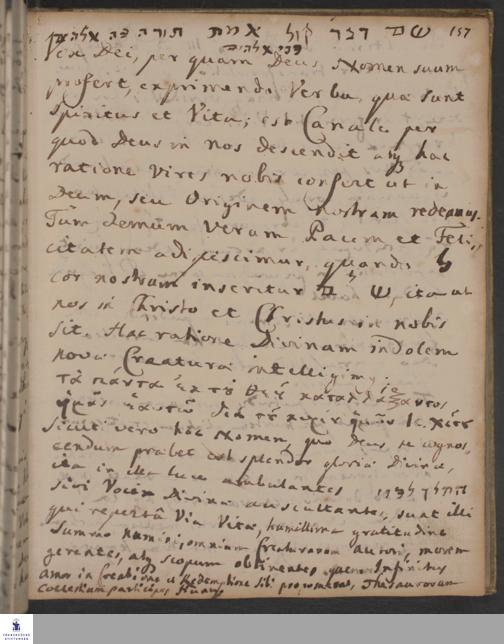 שם דבר קול אמת תורה כח אלהים 157
דברי אלהים
Vox Dei, per quam Deus Nomen suum
profert, exprimendi Verba, quæ sunt
Spiritus et Vita; est Canalis per
quod Deus in nos descendit atq hac
ratione vires nobis confert ut in
Deum, seu Originem nostram redeamus.
Tum demum veram Pacem et Feli-
citatem adipiscimur, quando
cor nostrum inseritur שם, ita ut
nos in Christo et Christus in nobis
sit. Hac ratione Divinam indolem
nova Creatura intelligimus
τὰ πάντα ἐκ τοῦ θεοῦ καταλλάξαντος
ἡμᾶς ἑαυτῷ διὰ
Sicuti vero hoc Nomen, quo Deus se cognos-
cendum præbet est splendor gloriæ Divinæ,
ita in illa luce ambulantes
sive Vocem Divinam auscultantes, sunt illi
qui repertâ Via Vitæ, humillima gratitudine
Summo Numini, omnium Creaturarum autori, morem
gerentes, atq scopum obtinentes quem Infinitus
Amor in Creatione et Redemptione sibi proponebat, Thesaurorum
Coelestium participes fiunt
FRANCKESCHE
STIFTUNGEN